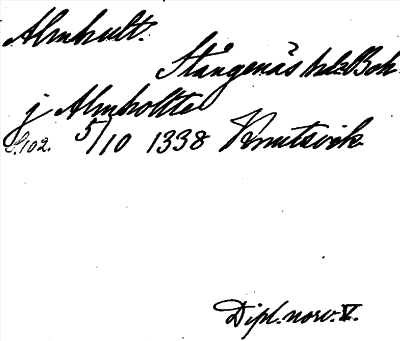 Almhult.
Stångenäs hd. Boh.
j Almholtte
S. 102. 5/10 1338 Knutsvik
Dipl. norv. V.